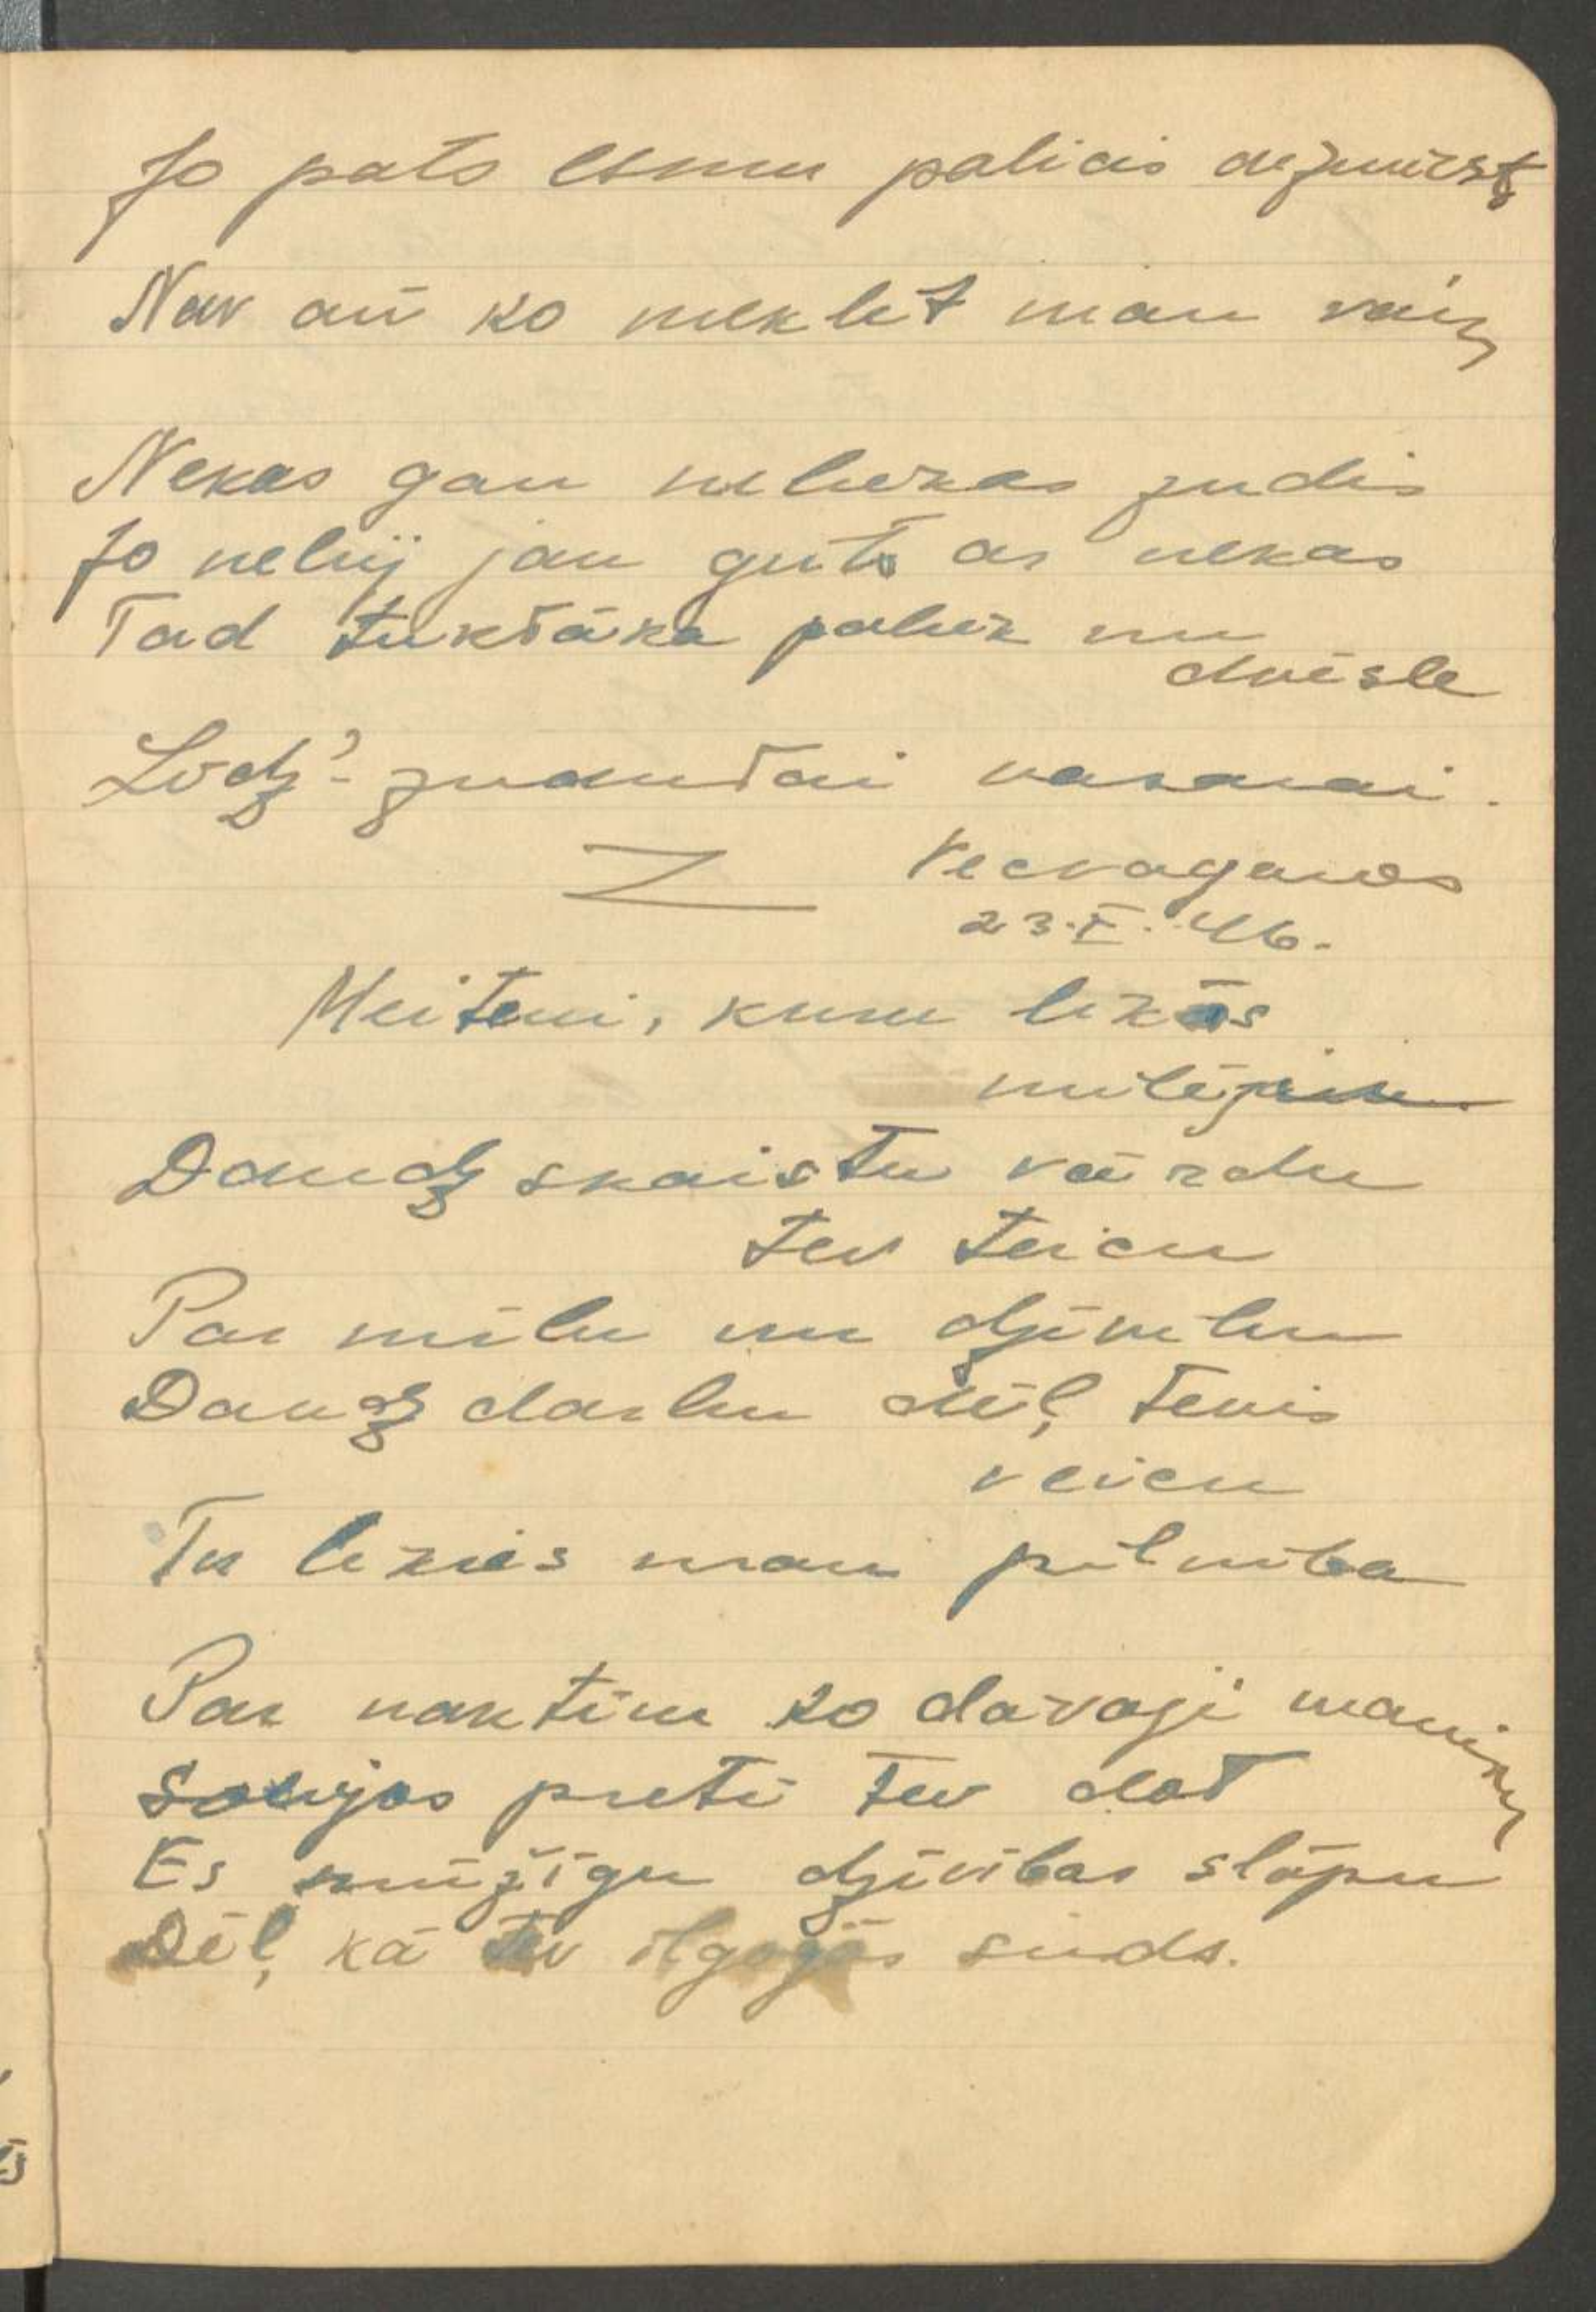 Jo pats esmu palicis aizmirsts
Nav arī ko meklēt man vairs
Nekas gan neliekas zudis
Jo nebij jau gūts ar nekas
Tad tukšāka paliek nu
dvēsle
Lūdz'
vasarai.
Vecvagaros
23.X.46.
Meitenei, kurai likās
mīlējām
Daudz skaistu vārdu
tev teicu
Par mīlu un dzīvību
Daudz darbu dēļ tevis
veicu
Tu likies man pilnība
Par naktīm ko dāvāji maniem
Solījos pretī tev dot
Es mūžīgu dzīvības slāpu
Dēļ, kā tev ilgojās sirds.